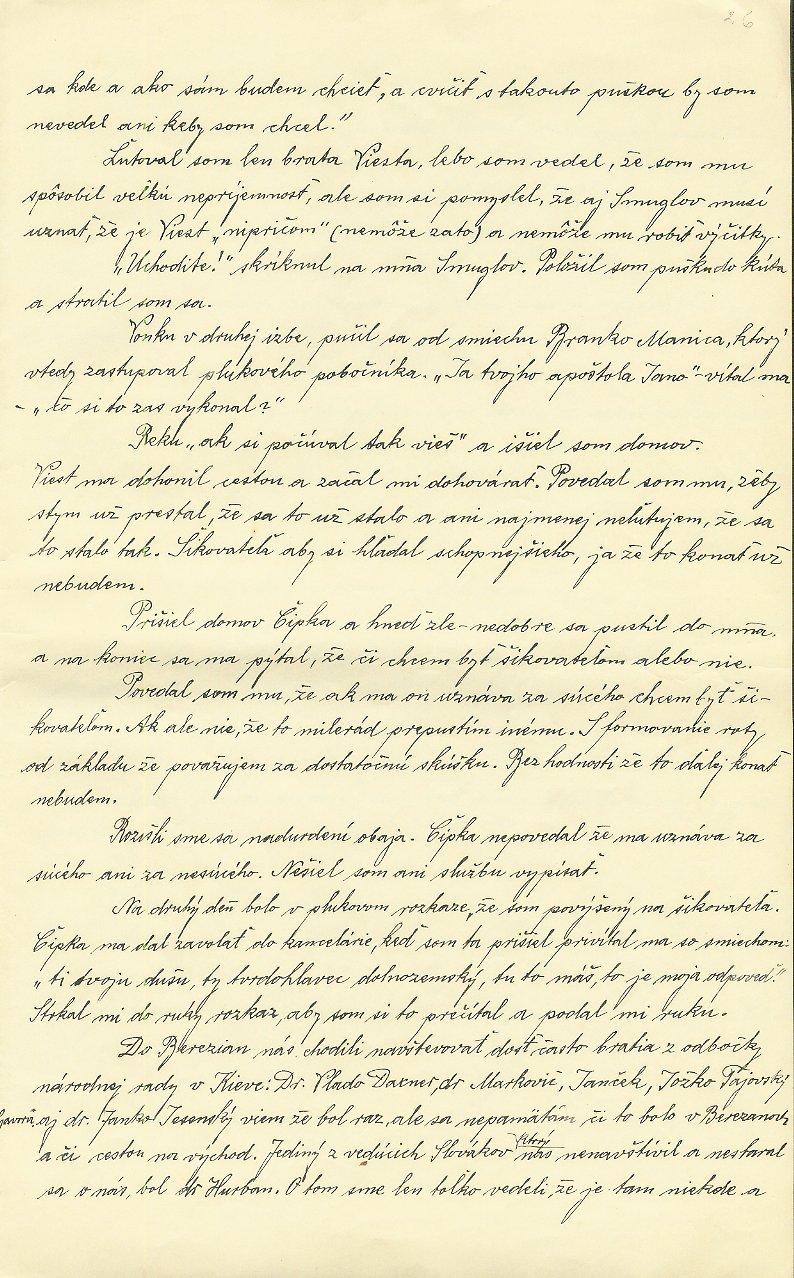 26
sa kde a ako sám budem chcieť, a cvičiť s takouto puškou by som
nevedel ani keby som chcel."
Ľutoval som len brata Viesta, lebo som vedel, že som mu
spôsobil veľkú nepríjemnosť, ale som si pomyslel, že aj Smuglov musí
uznať, že je Viest „nipričom" (nemôže zato) a nemôže mu robiť výčitky.
„Uchodite!" skríknul na mňa Smuglov. Položil som pušku do kúta
a stratil som sa.
Vonku v druhej izbe, pučil sa od smiechu Branko Manica, ktorý
vtedy zastupoval plukového pobočníka. „Ta tvojho apoštola Jano" - vítal ma
- „čo si to zas vykonal?"
Reku „ak si počúval tak vieš" a išiel som domov.
Viest ma dohonil cestou a začal mi dohovárať. Povedal som mu, žeby
stym už prestal, že sa to už stalo a ani najmenej neľutujem, že sa
to stalo tak. Šikovateľa aby si hľadal schopnejšieho, ja že to konať už
nebudem.
Prišiel domov Čipka a hneď zle-nedobre sa pustil do mňa.
a na koniec sa ma pýtal, že či chcem byť šikovateľom alebo nie.
Povedal som mu, že ak ma on uznáva za súceho chcem byť ši-
kovateľom. Ak ale nie, že to milerád prepustím inému. I formovanie roty
od základu že považujem za dostatočnú skúšku. Bez hodnosti že to ďalej konať
nebudem.
Rozišli sme sa nadurdení obaja. Čipka nepovedal že ma uznáva za
súceho ani za nesúceho. Nešiel som ani službu vypísať.
Na druhý deň bolo v plukovom rozkaze, že som povýšený na šikovateľa.
Čipka ma dal zavolať do kancelárie, keď som ta prišiel privítal ma so smiechom:
„ti tvoju dušu, ty tvrdohlavec dolnozemský, tu to máš, to je moja odpoveď."
Strkal mi do ruky rozkaz, aby som si to prečítal a podal mi ruku.
Do Berezian nás chodili navštevovať dosť často bratia z odbočky
národnej rady v Kieve: Dr. Vlado Daxner, dr Markovič, Janček, Jožko Tajovský
aj dr. Janko Jesenský viem že bol raz, ale sa nepamätám či to bolo v Berezanoch
a či cestou na východ. Jediný z vedúcich Slovákov ktorý nás nenavštívil a nestaral
sa o nás, bol dr Hurban. O tom sme len toľko vedeli, že je tam niekde a